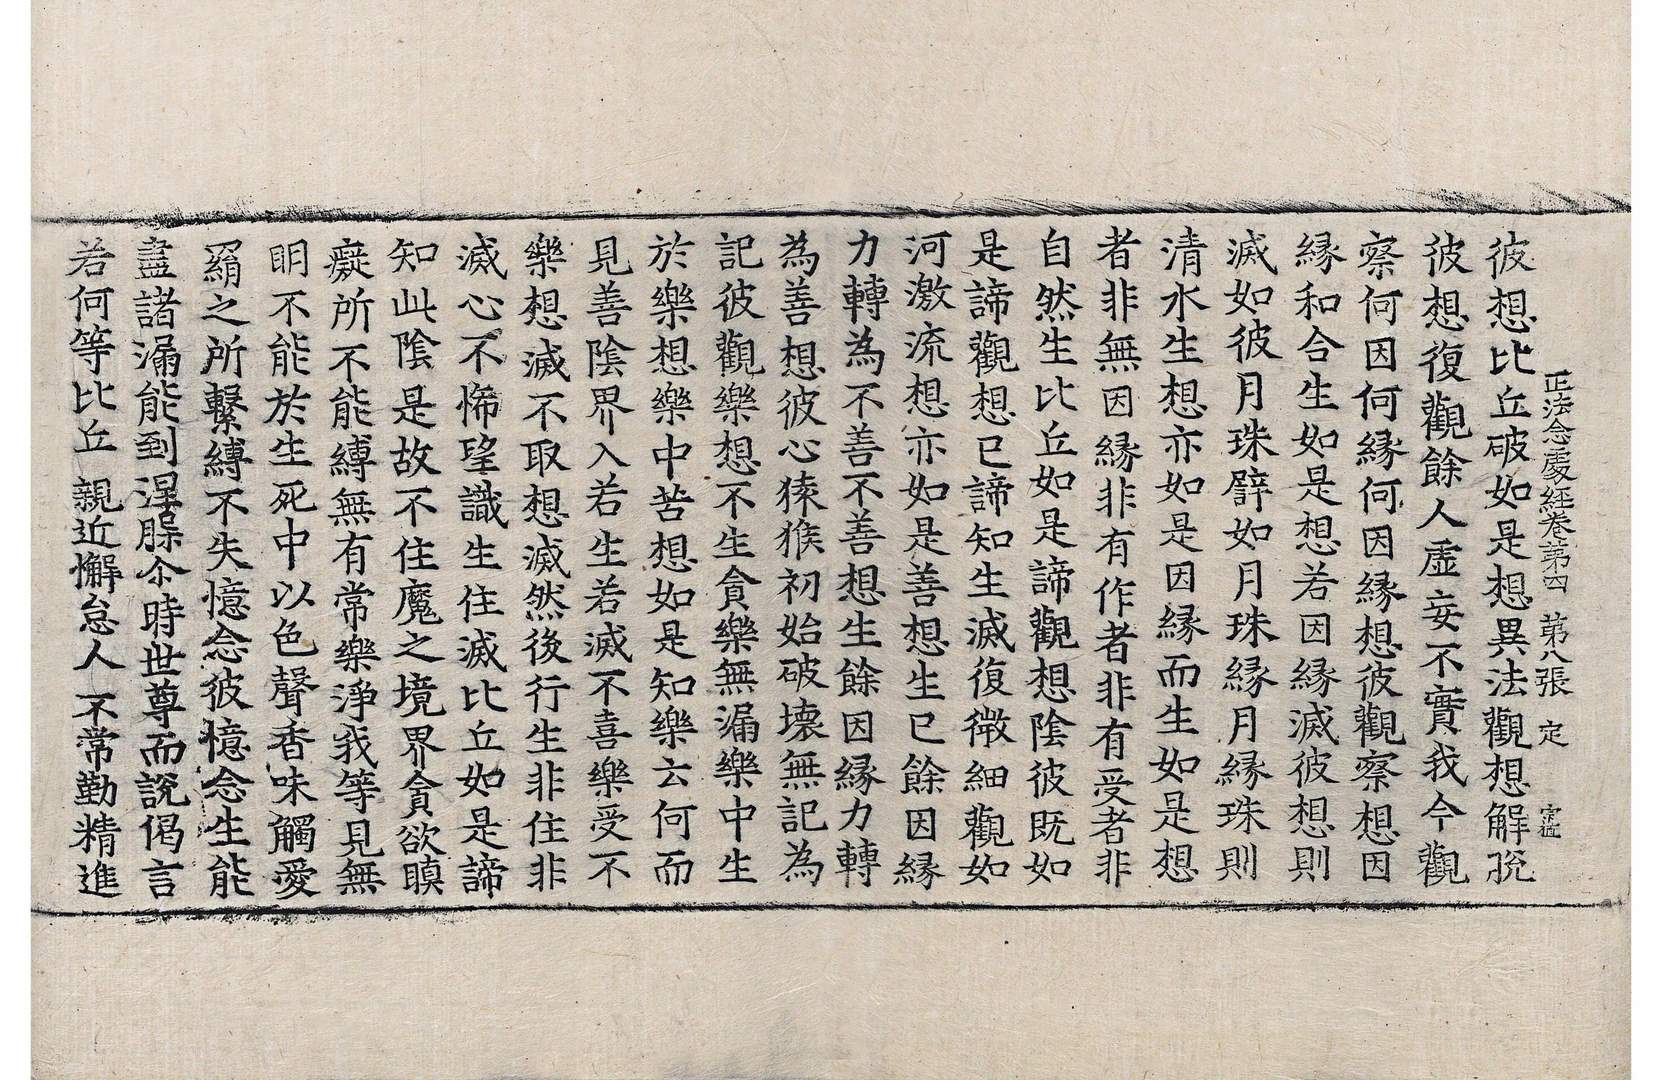 正法念處經卷第四　第八張　定
彼想比丘破如是想異法觀想解脫
彼想復觀餘人虛妄不實我今觀
察何因何緣何因緣想彼觀察想因
緣和合生如是想若因緣滅彼想則
滅如彼月珠譬如月珠緣月緣珠則
清水生想亦如是因緣而生如是想
者非無因緣非有作者非有受者非
自然生比丘如是諦觀想陰彼旣如
是諦觀想已諦知生滅復微細觀如
河激流想亦如是善想生已餘因緣
力轉為不善不善想生餘因緣力轉
為善想彼心猿猴初始破壞無記為
記彼觀樂想不生貪樂無漏樂中生
於樂想樂中苦想如是知樂云何而
見善陰界入若生若滅不喜樂受不
樂想滅不取想滅然後行生非住非
滅心不悕望識生住滅比丘如是諦
知此陰是故不住魔之境界貪欲瞋
癡所不能縛無有常樂淨我等見無
明不能於生死中以色聲香味觸愛
羂之所繫縛不失憶念彼憶念生能
盡諸漏能到涅槃尒時世尊而說偈言
若何等比丘　親近懈怠人　不常勤精進